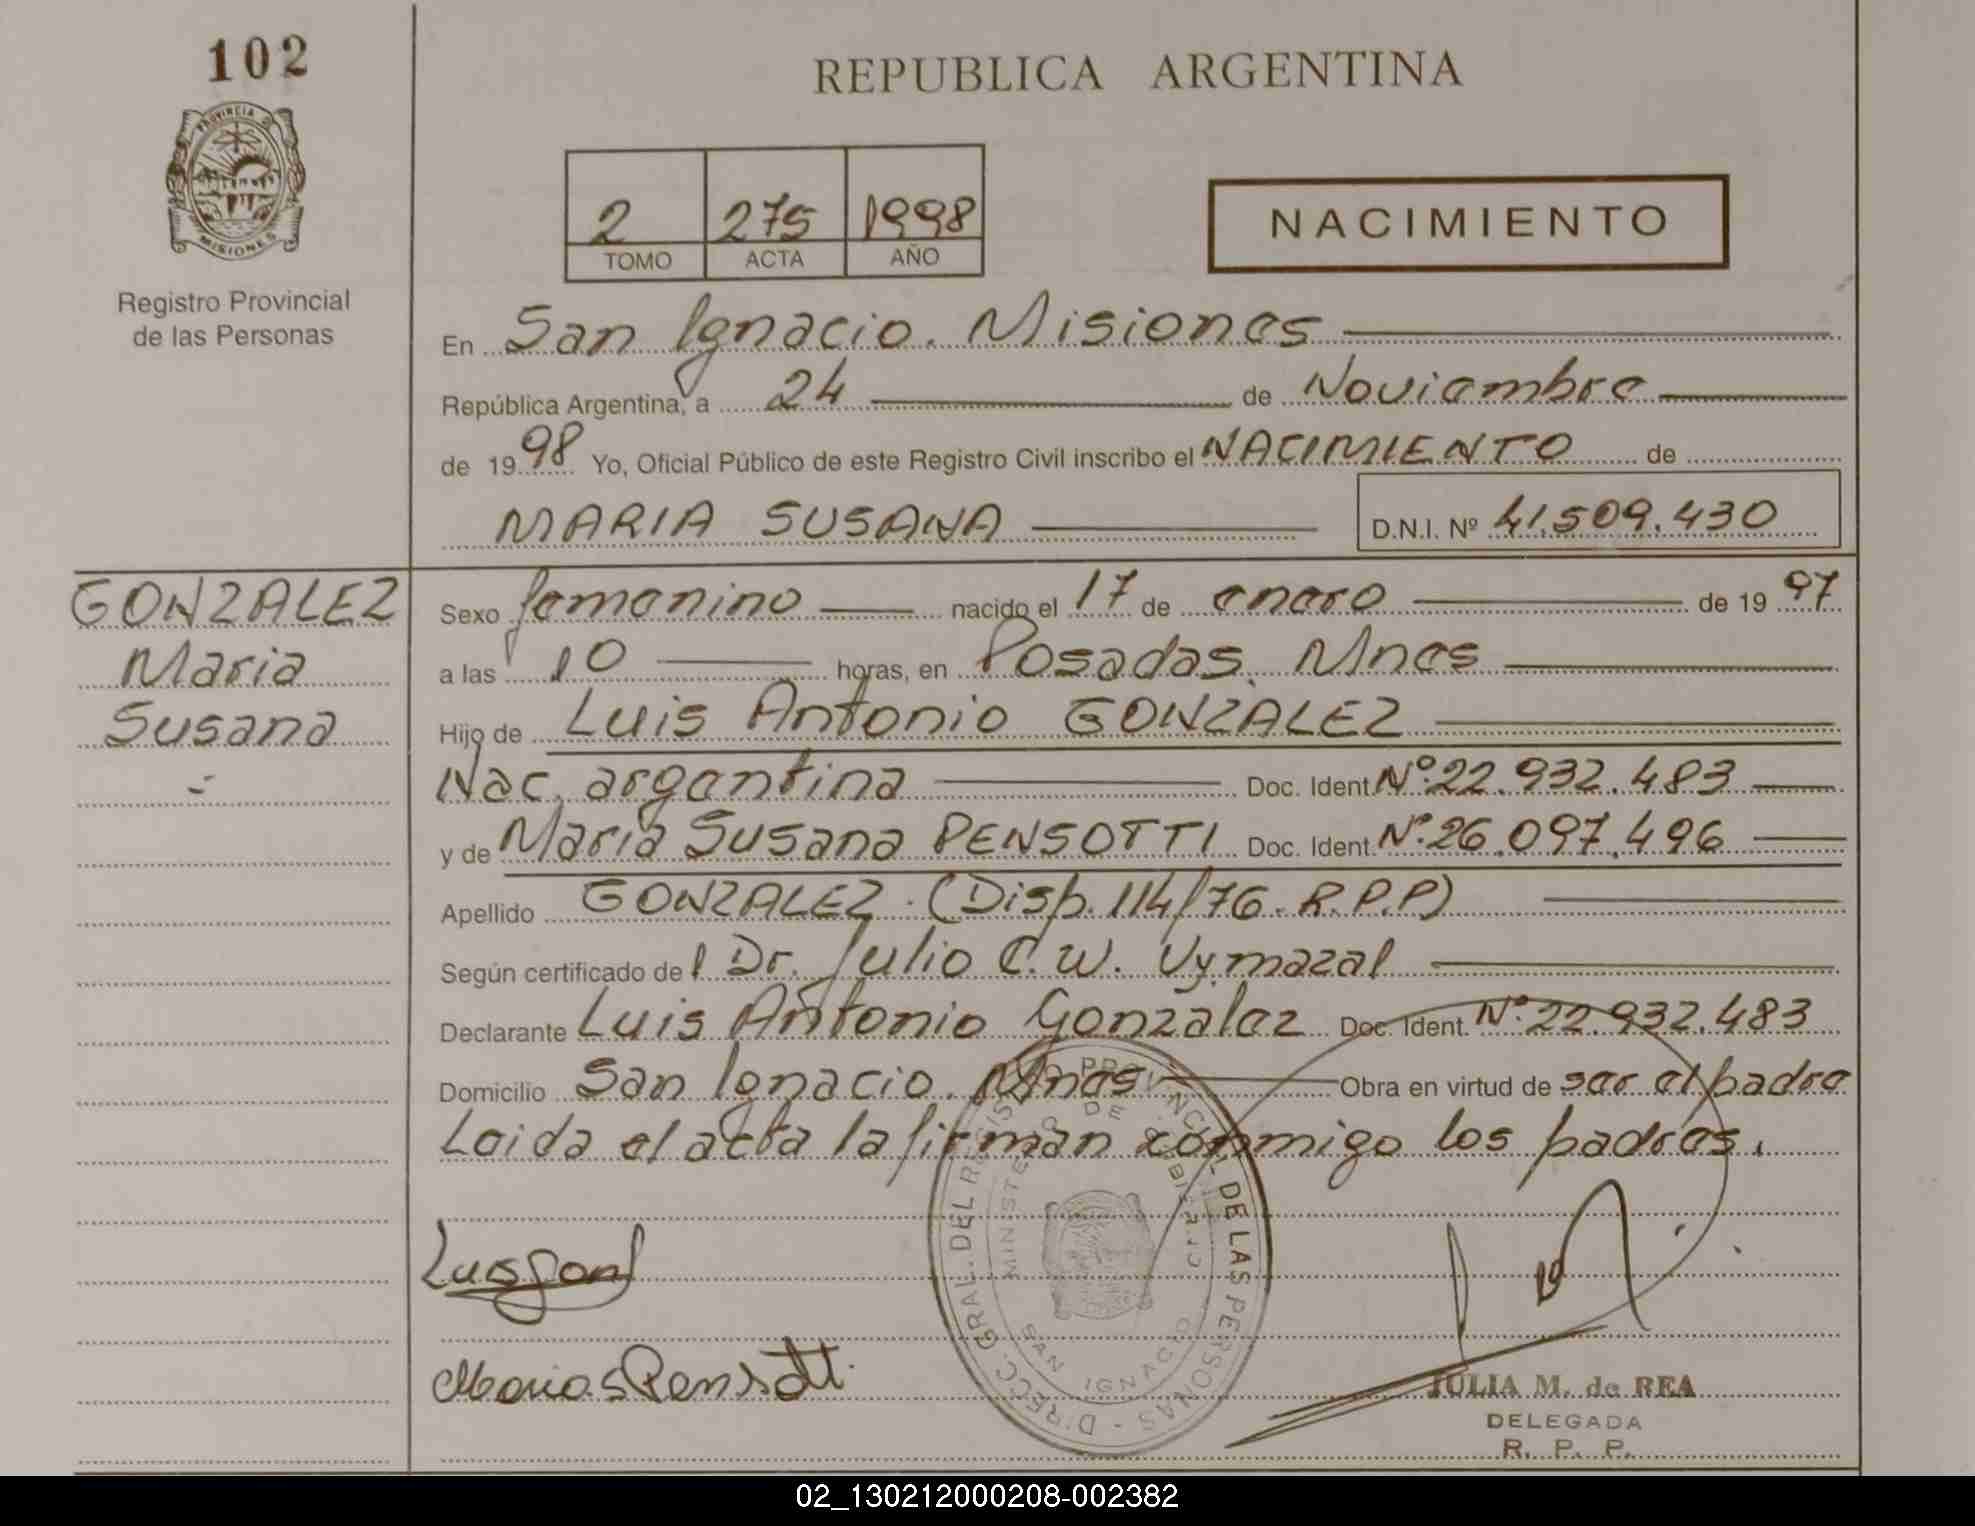 102
REPUBLICA ARGENTINA
PROVINCIA DE
MISIONES
Registro Provincial
de las Personas
2 275 1998
TOMO ACTA AÑO
NACIMIENTO
En San Ignacio. Misiones
República Argentina, a 24 de Noviembre
de 1998 Yo, Oficial Público de este Registro Civil inscribo el NACIMIENTO de
MARIA SUSANA D.N.I. Nº 41.509.430
GONZALEZ
Maria
Susana
Sexo femenino nacido el 17 de enero de 1997
a las 10 horas, en Posadas. Mnes
Hijo de Luis Antonio GONZALEZ
Nac. argentina Doc. Ident. Nº 22.932.483
y de Maria Susana PENSOTTI Doc. Ident. Nº 26.097.496
Apellido GONZALEZ. (Disp. 114/76. R.P.P)
Según certificado del Dr. Julio C. W. Vymazal
Declarante Luis Antonio Gonzalez Doc. Ident. Nº 22.932.483
Domicilio San Ignacio. Mnes Obra en virtud de ser el padre
Leida el acta la firman conmigo los padres.
DIRECC. GRAL. DEL REGISTRO PROVINCIAL DE LAS PERSONAS
MINISTERIO DE GOBIERNO
SAN IGNACIO
Luis Gon
Maria S Pensotti
JULIA M. de REA
DELEGADA
R. P. P.
02_130212000208-002382